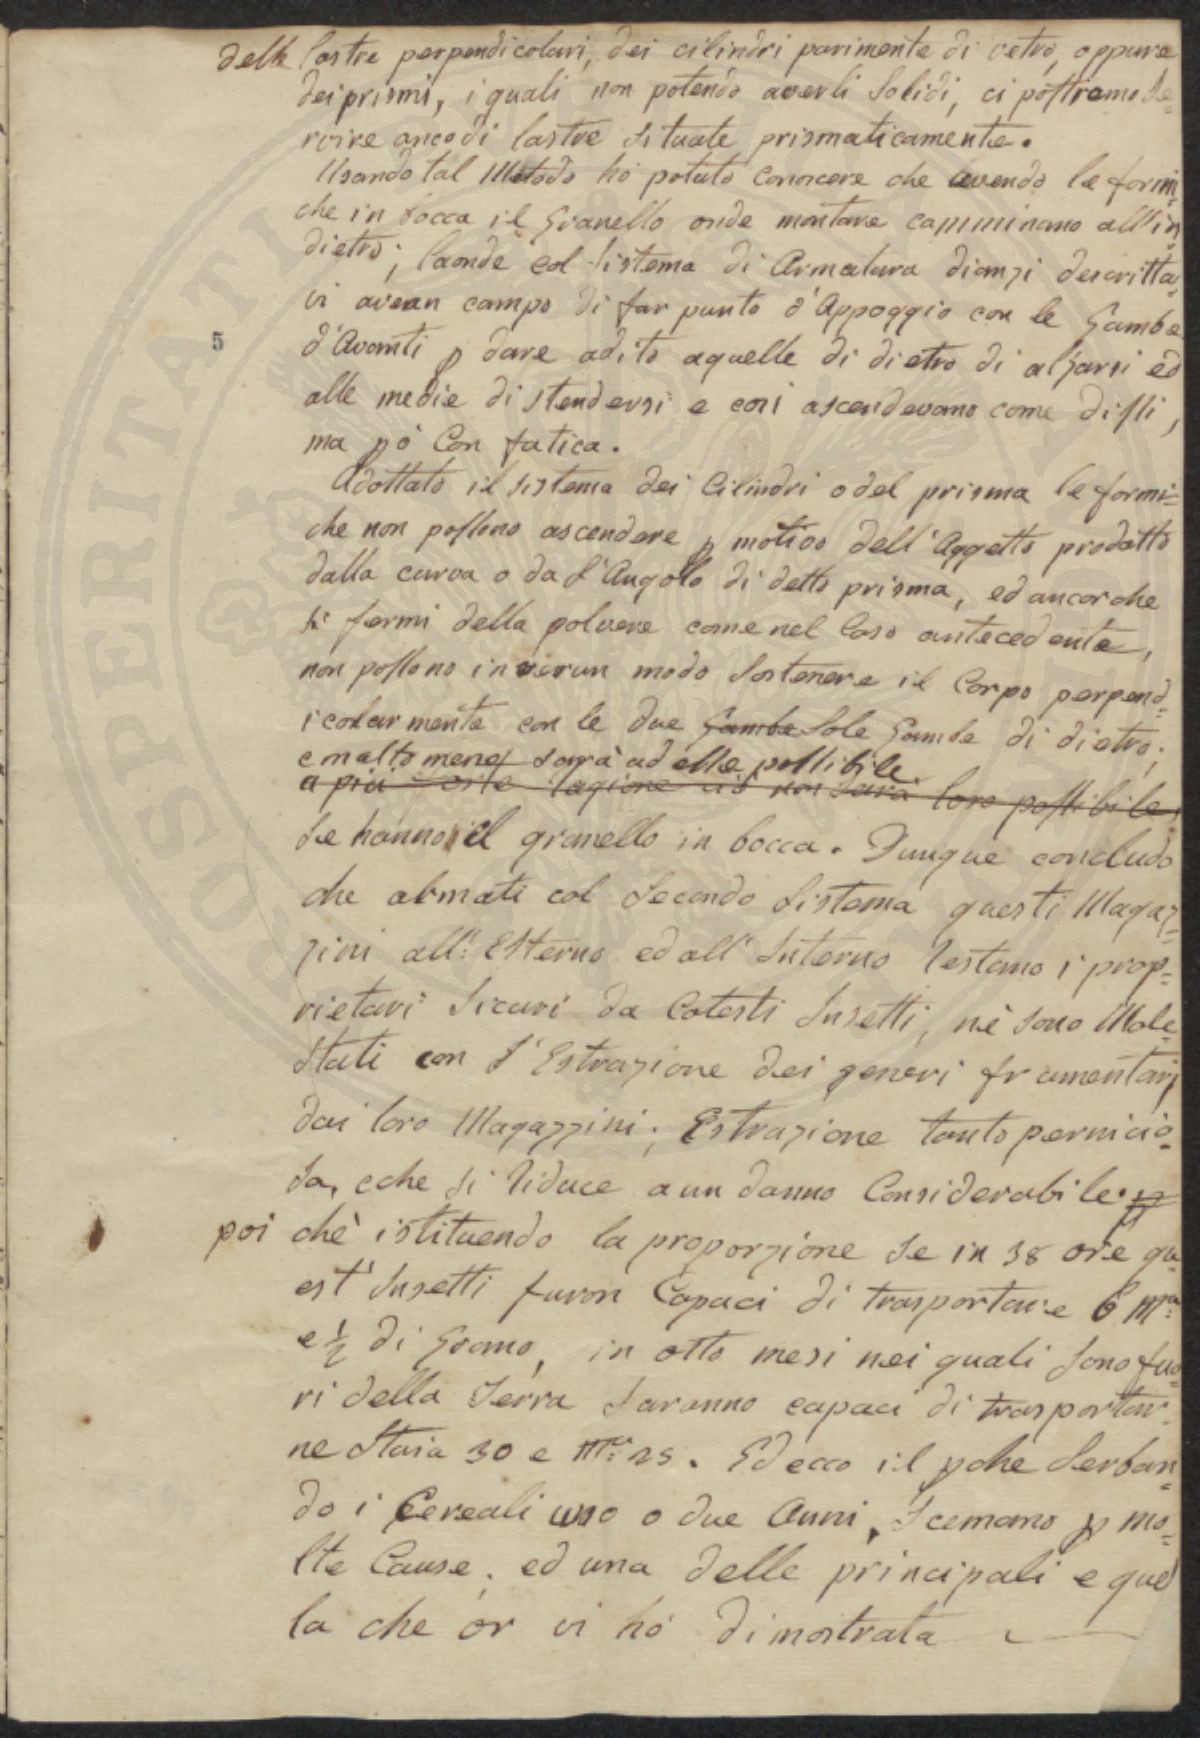 delle lastre perpendicolari, dei cilindri parimente di vetro, oppure
dei prismi, i quali non potendo averli Solidi, ci possiamo Se=
rvire anco di lastre situate prismaticamente.
Usando tal Metodo ho potuto conoscere che avendo le formi=
che in bocca il Granello onde montare camminano all'in=
dietro; laonde col Sistema di Armatura dianzi descritta,
vi avean campo di far punto d'Appoggio con le Gambe
5
d'Avanti p dare adito a quelle di dietro di alzarsi ed
alle medie di stendersi e così ascendevano come dissi,
ma pò Con fatica.
Adottato il sistema dei Cilindri o del prisma le formi=
che non possono ascendere p motivo dell'Aggetto prodotto
dalla curva o da l'Angolo di detto prisma, ed ancorche
si fermi della polvere come nel Caso antecedente,
non possono in verun modo Sostenere il Corpo perpend=
icolarmente con le due Gambe Sole Gambe di dietro;
e molto meno sarà ad esse possibile
a più forte ragione ciò non Sarà loro possibile,
Se hanno il granello in bocca. Dunque concludo
che armati col Secondo Sistema questi Magaz=
zini all'Esterno ed all'Interno restano i prop=
rietari Sicuri da Cotesti Insetti, nè sono Mole
stati con l'Estrazione dei generi frumentari
dai loro Magazzini; Estrazione tanto pernicio=
sa, e che si riduce a un danno Considerabile. p
poi chè istituendo la proporzione Se in 38 ore qu=
est'Insetti furon Capaci di trasportare 6 Mne
e ½ di Grano, in otto mesi nei quali Sono fuo=
ri della Terra Saranno capaci di trasportar=
ne Staia 30 e Mne 25. Ed ecco il pche Serban=
do i Cereali uno o due Anni, Scemano p mo=
lte Cause, ed una delle principali e quel
la che or vi hò dimostrata
PROSPERITATI